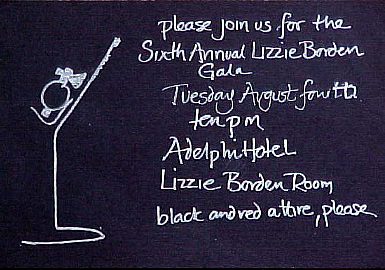 please join us for the
Sixth Annual Lizzie Borden
Gala
Tuesday August fourth
ten pm
Adelphi Hotel
Lizzie Borden Room
black and red attire, please